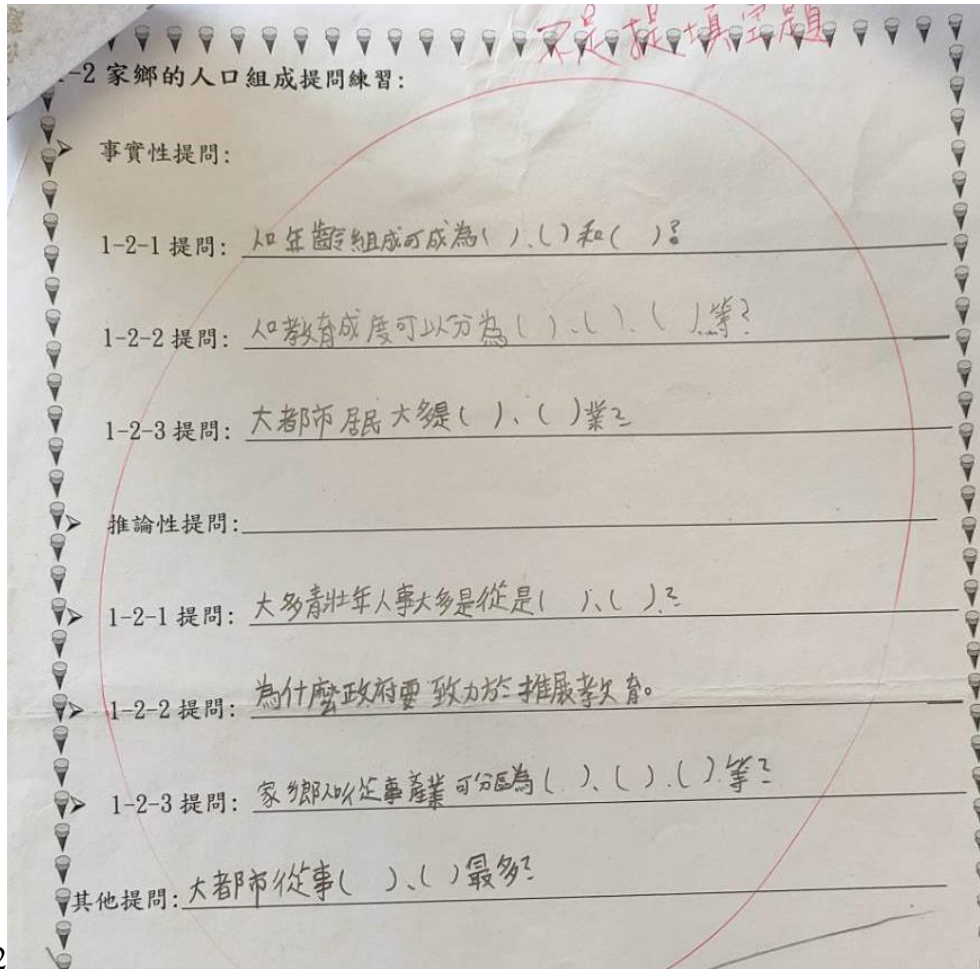 不是提填空題
-2 家鄉的人口組成提問練習:
事實性提問:
1-2-1 提問: 人口年齡組成可成為( )、( )和( )?
1-2-2 提問: 人口教育成度可以分為( )、( )、( )等?
1-2-3 提問: 大都市居民大多是( )、( )業?
推論性提問:
1-2-1 提問: 大多青壯年人事大多是從是( )、( )?
1-2-2 提問: 為什麼政府要致力於推展教育。
1-2-3 提問: 家鄉人口從事產業可分區為( )、( )、( )等?
其他提問: 大都市從事( )、( )最多?
2